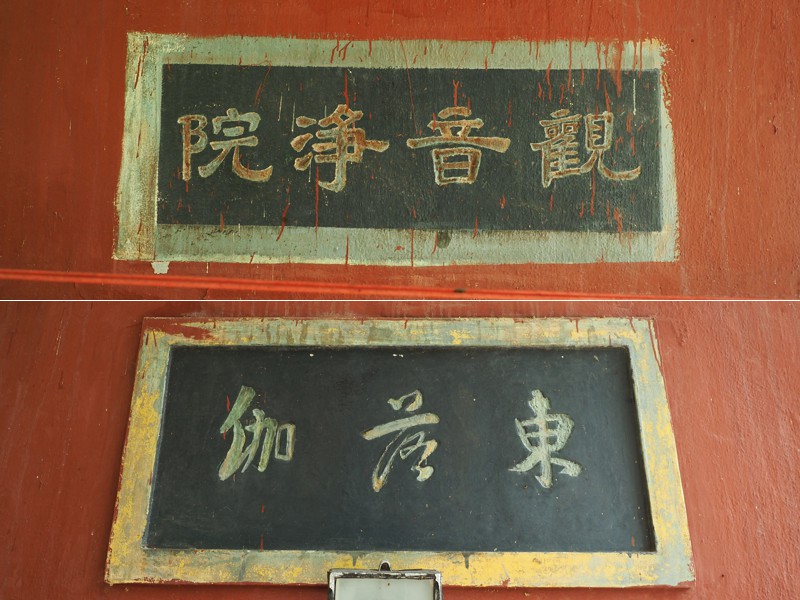 觀音淨院
東落伽